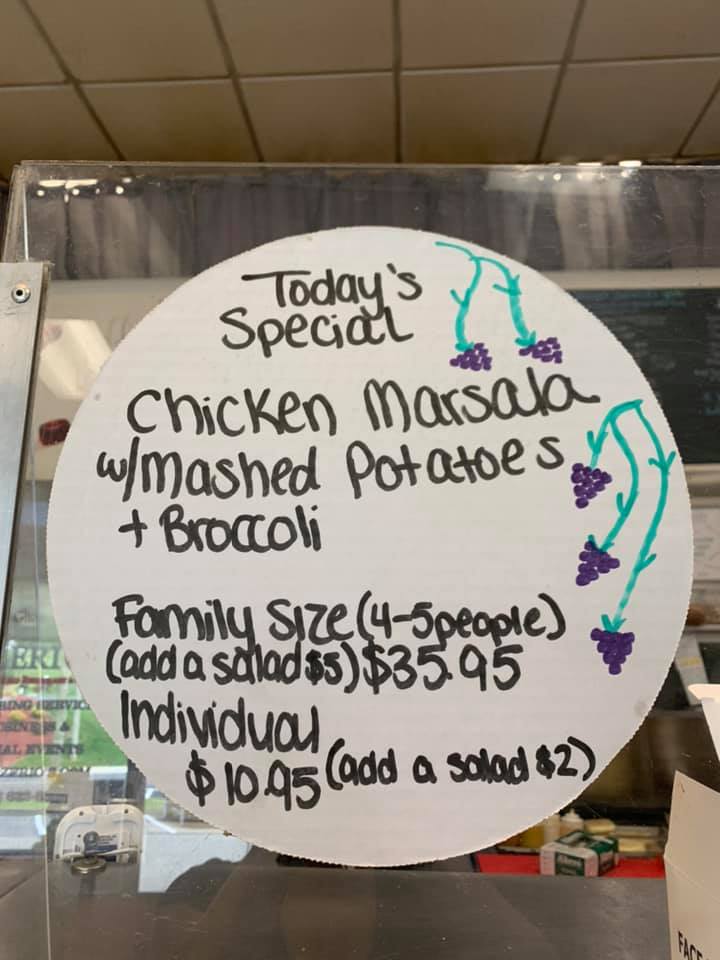 Today's
Special
Chicken Marsala
w/Mashed Potatoes
+ Broccoli
Family Size (4-5people)
(add a salad $5) $35.95
Individual
$10.95 (add a salad $2)
FACE